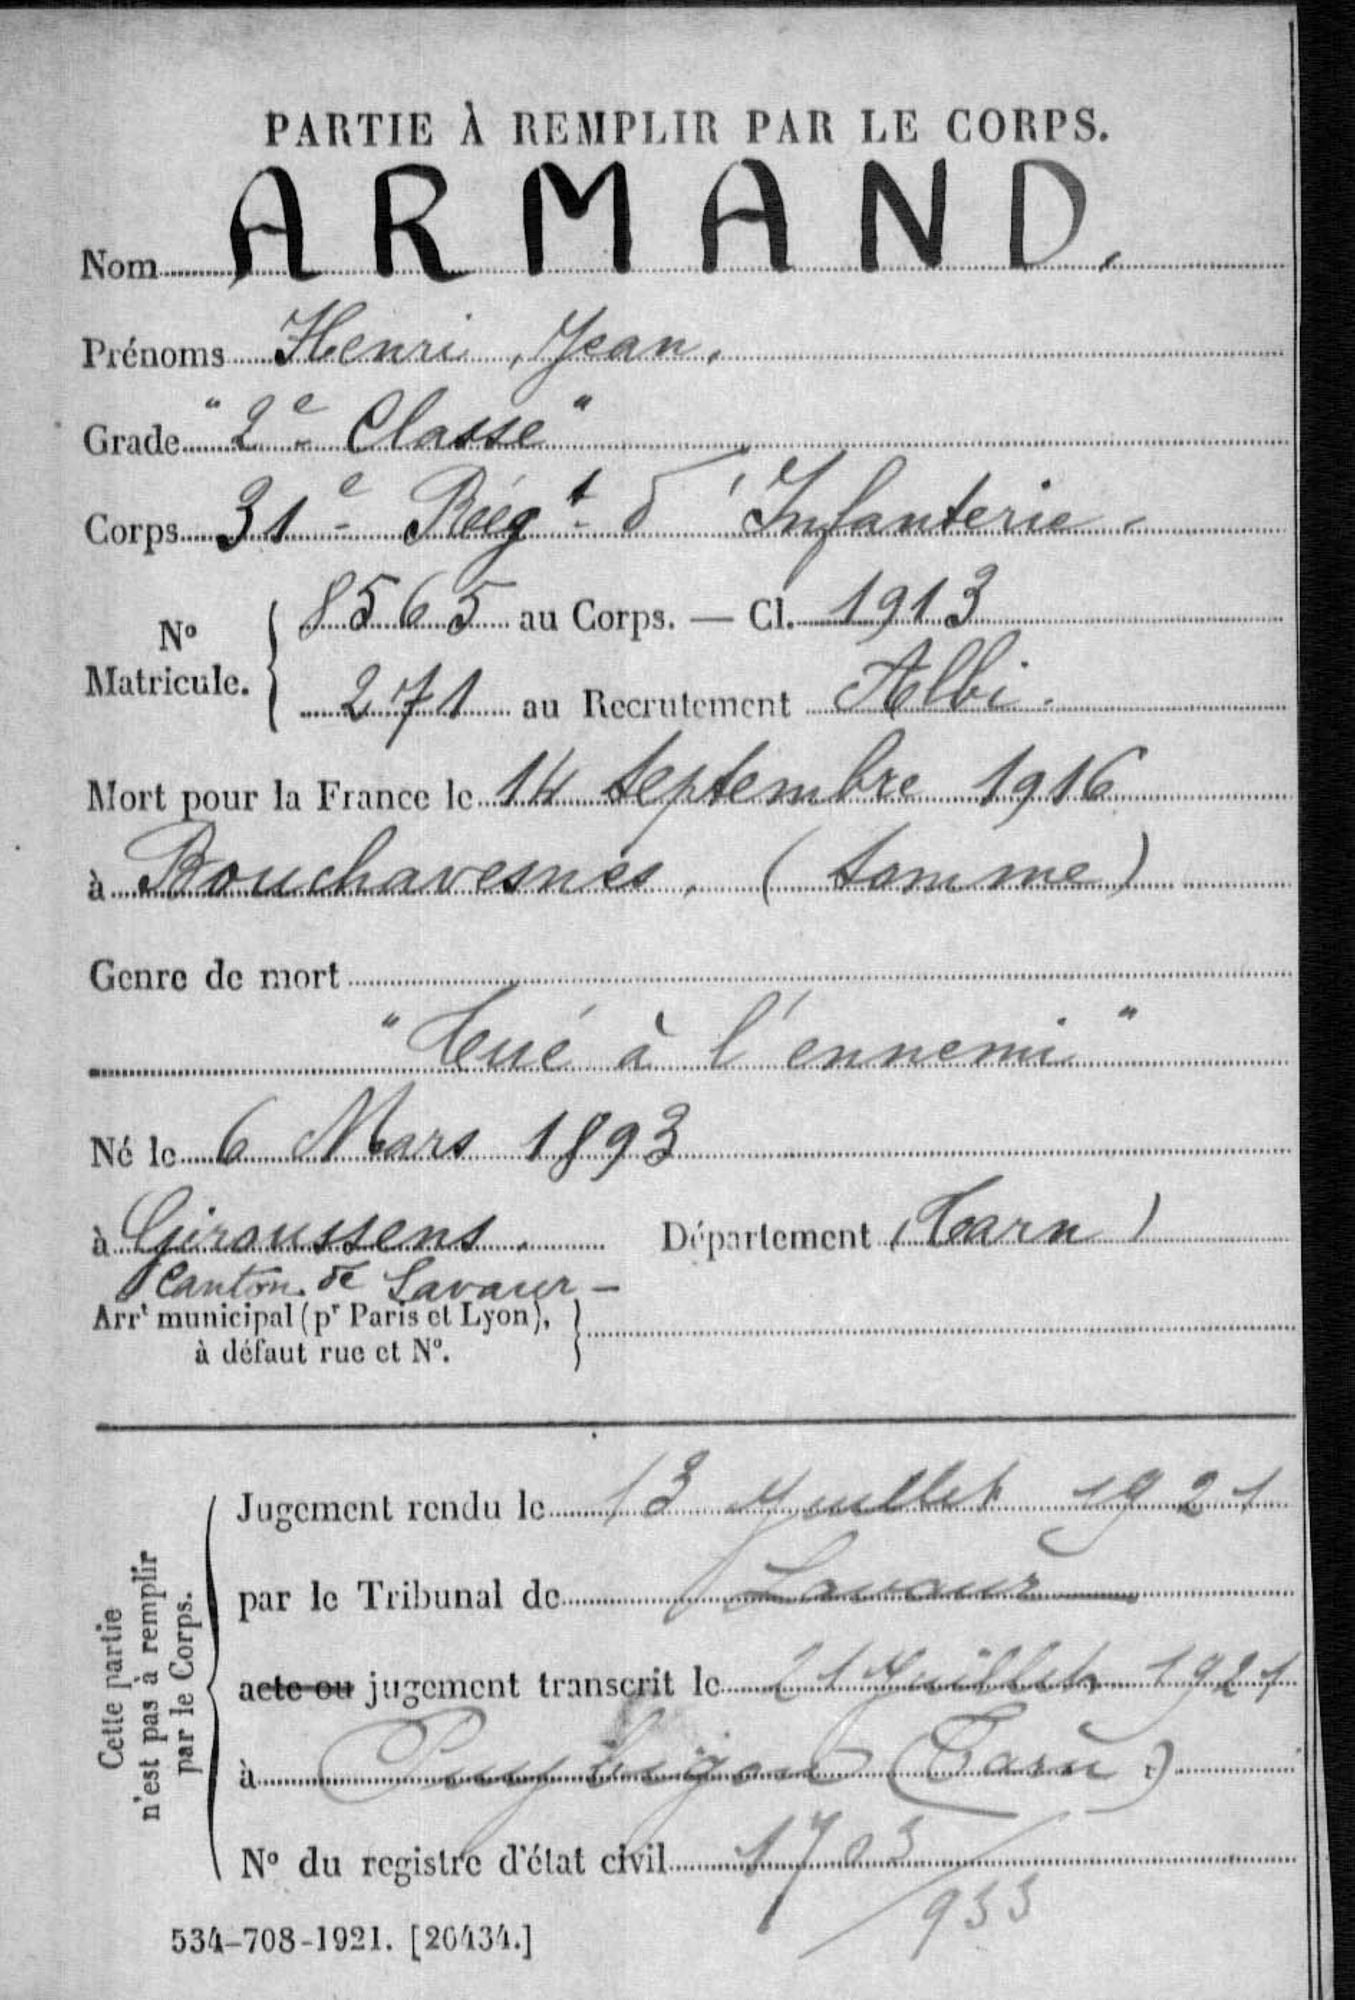 PARTIE À REMPLIR PAR LE CORPS.
Nom ARMAND.
Prénoms Henri, Jean.
Grade "2e Classe"
Corps 31e Régt d'Infanterie.
No Matricule. { 8565 au Corps. — Cl. 1913
271 au Recrutement Albi.
Mort pour la France le 14 Septembre 1916
à Bouchavesnes. (Somme)
Genre de mort
"Tué à l'ennemi"
Né le 6 Mars 1893
à Giroussens. Département (Tarn)
Canton de Lavaur —
Arrt municipal (pr Paris et Lyon),
à défaut rue et No. }
Cette partie
n'est pas à remplir
par le Corps.
Jugement rendu le 13 Juillet 1921
par le Tribunal de Lavaur
acte ou jugement transcrit le 21 Juillet 1921
à Puybegon (Tarn)
No du registre d'état civil 1703/933
534-708-1921. [26434.]